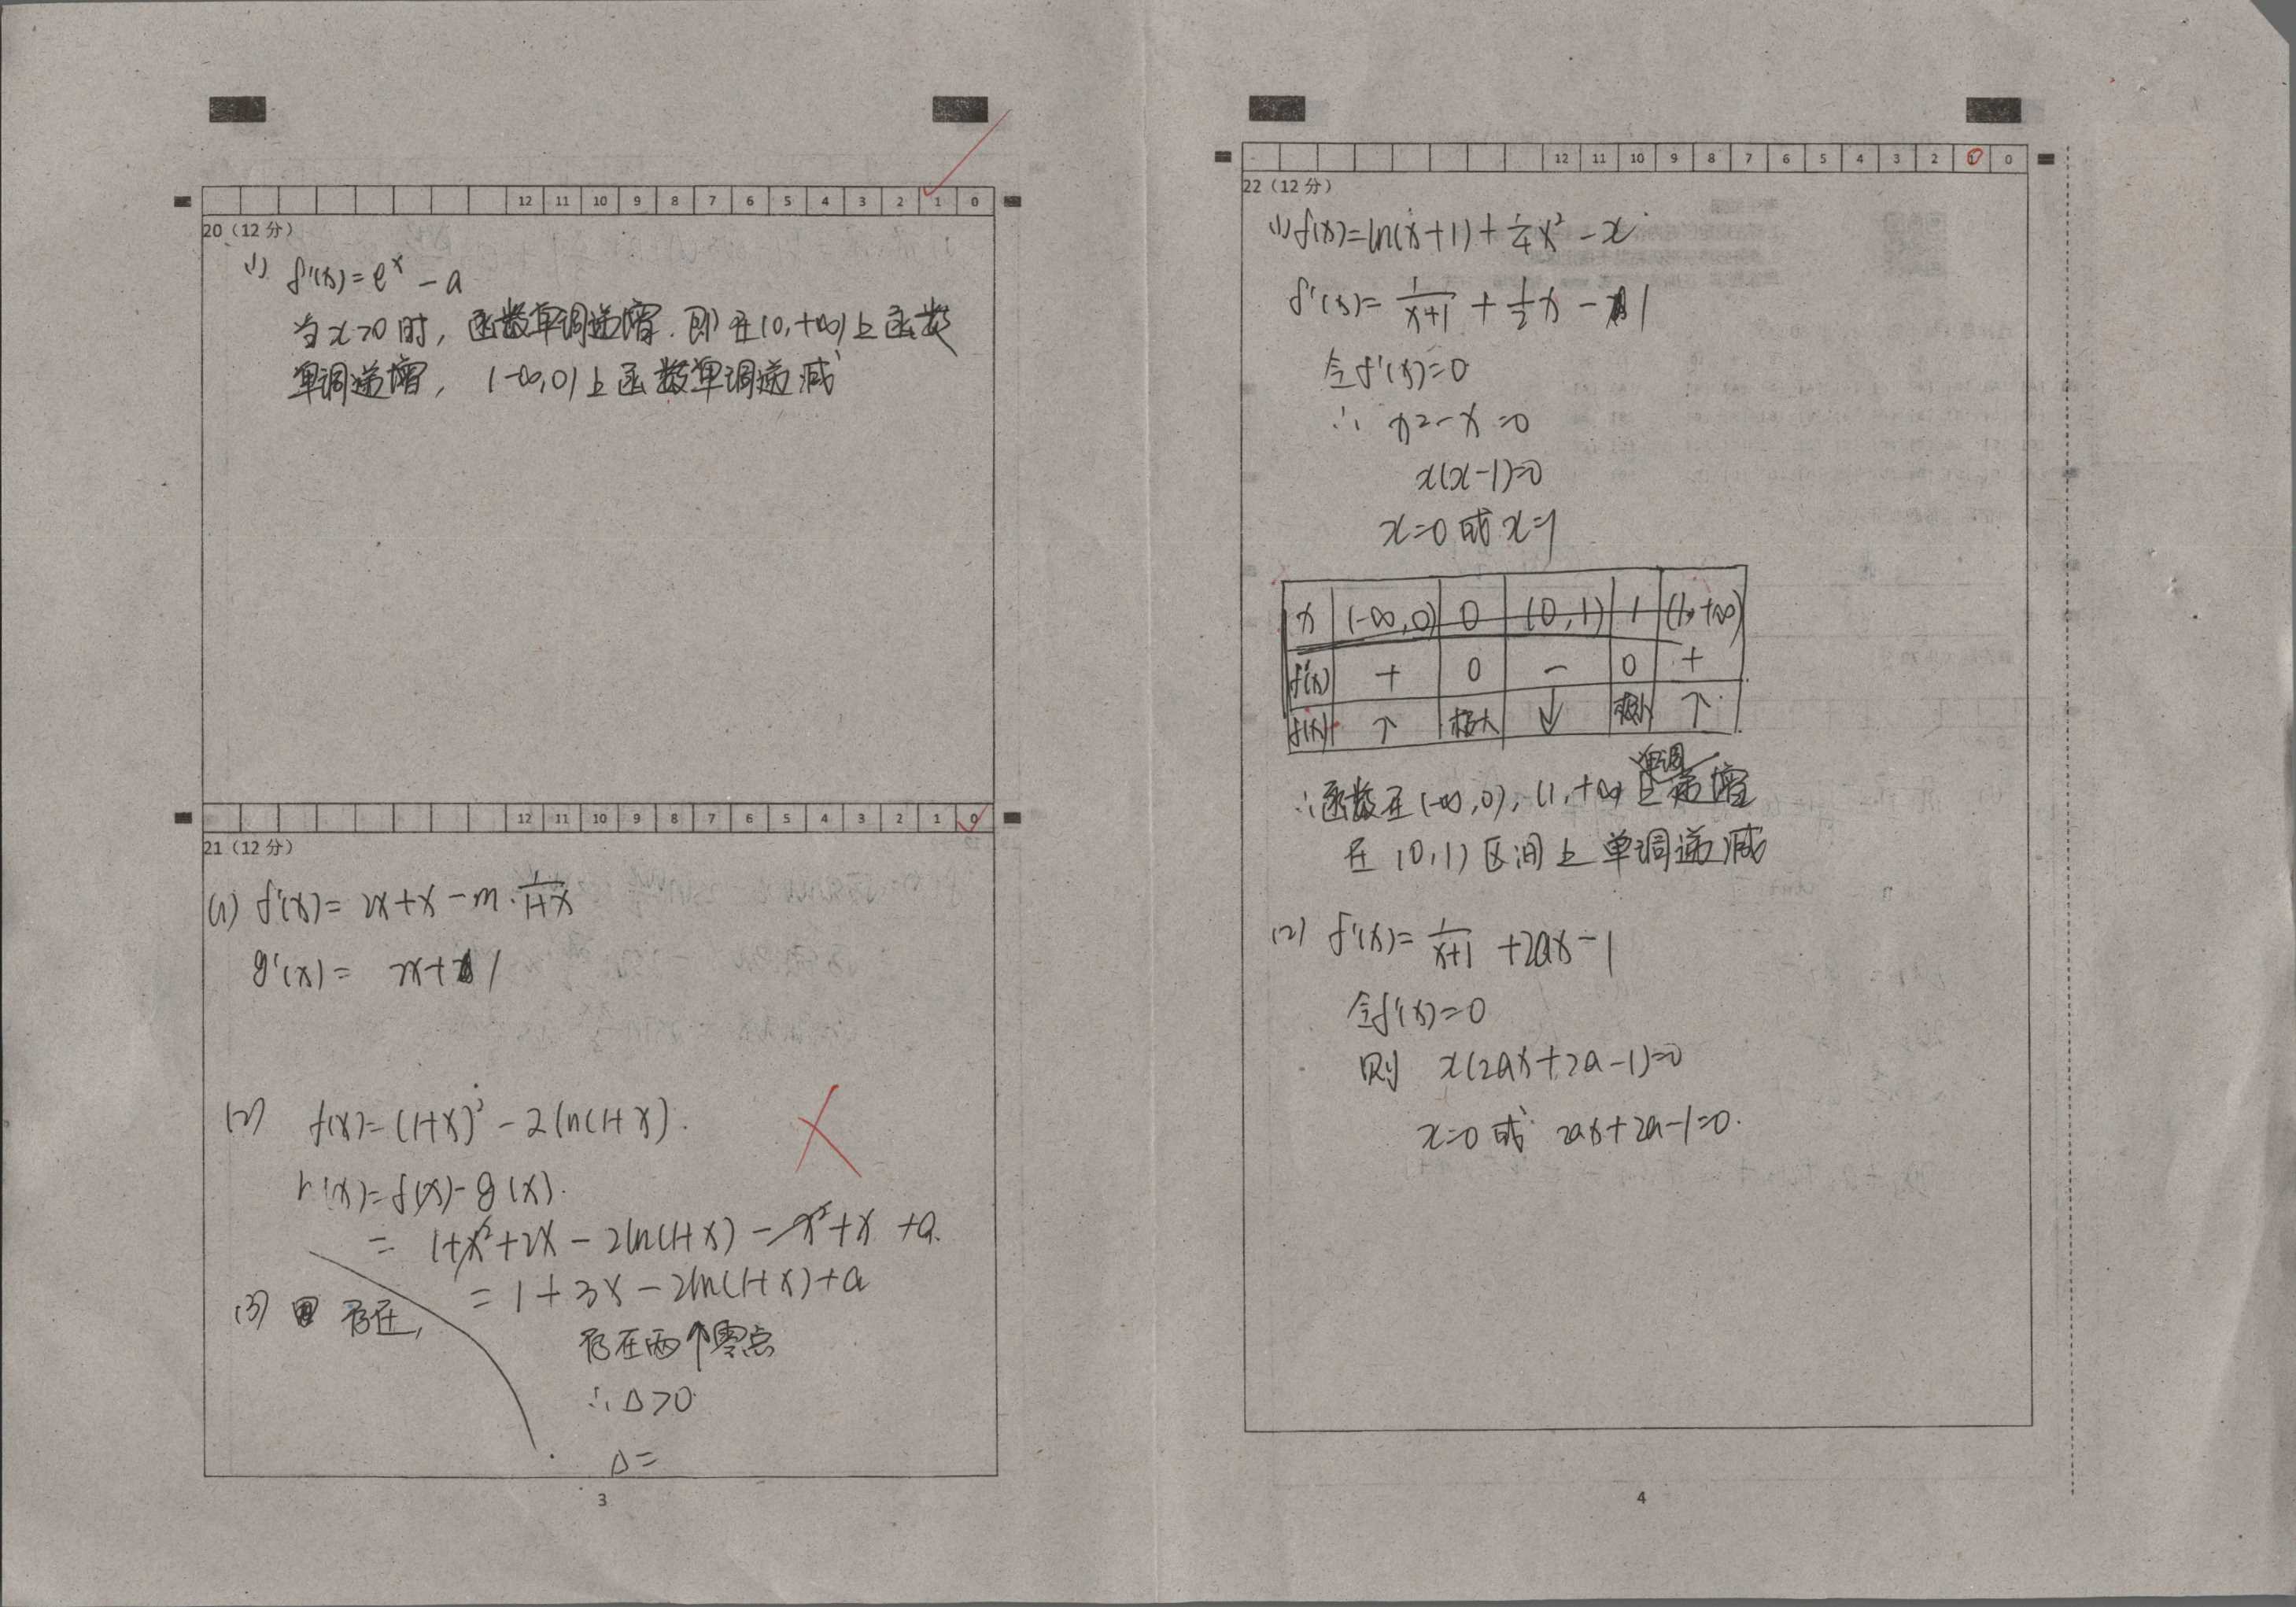 12 11 10 9 8 7 6 5 4 3 2 1 0
20（12 分）
(1) f'(x)=e^x -a
当x>0时，函数单调递增.即在(0,+∞)上函数
单调递增，(-∞,0)上函数单调递减
12 11 10 9 8 7 6 5 4 3 2 1 0
21（12 分）
(1) f'(x)= 2x+x-m·1/(1+x)
g'(x)= 2x+1
(2) f(x)=(1+x)²-2ln(1+x).
h'(x)=f(x)-g(x).
= 1+x²+2x-2ln(1+x)-x²+x+a.
= 1+3x-2ln(1+x)+a
(3) 存在,
存在两个零点
∴Δ>0
Δ=
3
12 11 10 9 8 7 6 5 4 3 2 1 0
22（12 分）
(1)f(x)=ln(x+1)+1/4x²-x
f'(x)=1/(x+1)+1/2x-1
令f'(x)=0
∴ x2-x=0
x(x-1)=0
x=0或x=1
x (-∞,0) 0 (0,1) 1 (1,+∞)
f'(x) + 0 - 0 +
f(x) ↑ 极大 ↓ 极小 ↑
∴函数在(-∞,0),(1,+∞)上单调递增
在(0,1)区间上单调递减
(2) f'(x)=1/(x+1)+2ax-1
令f'(x)=0
则 x(2ax+2a-1)=0
x=0或 2ax+2a-1=0.
4